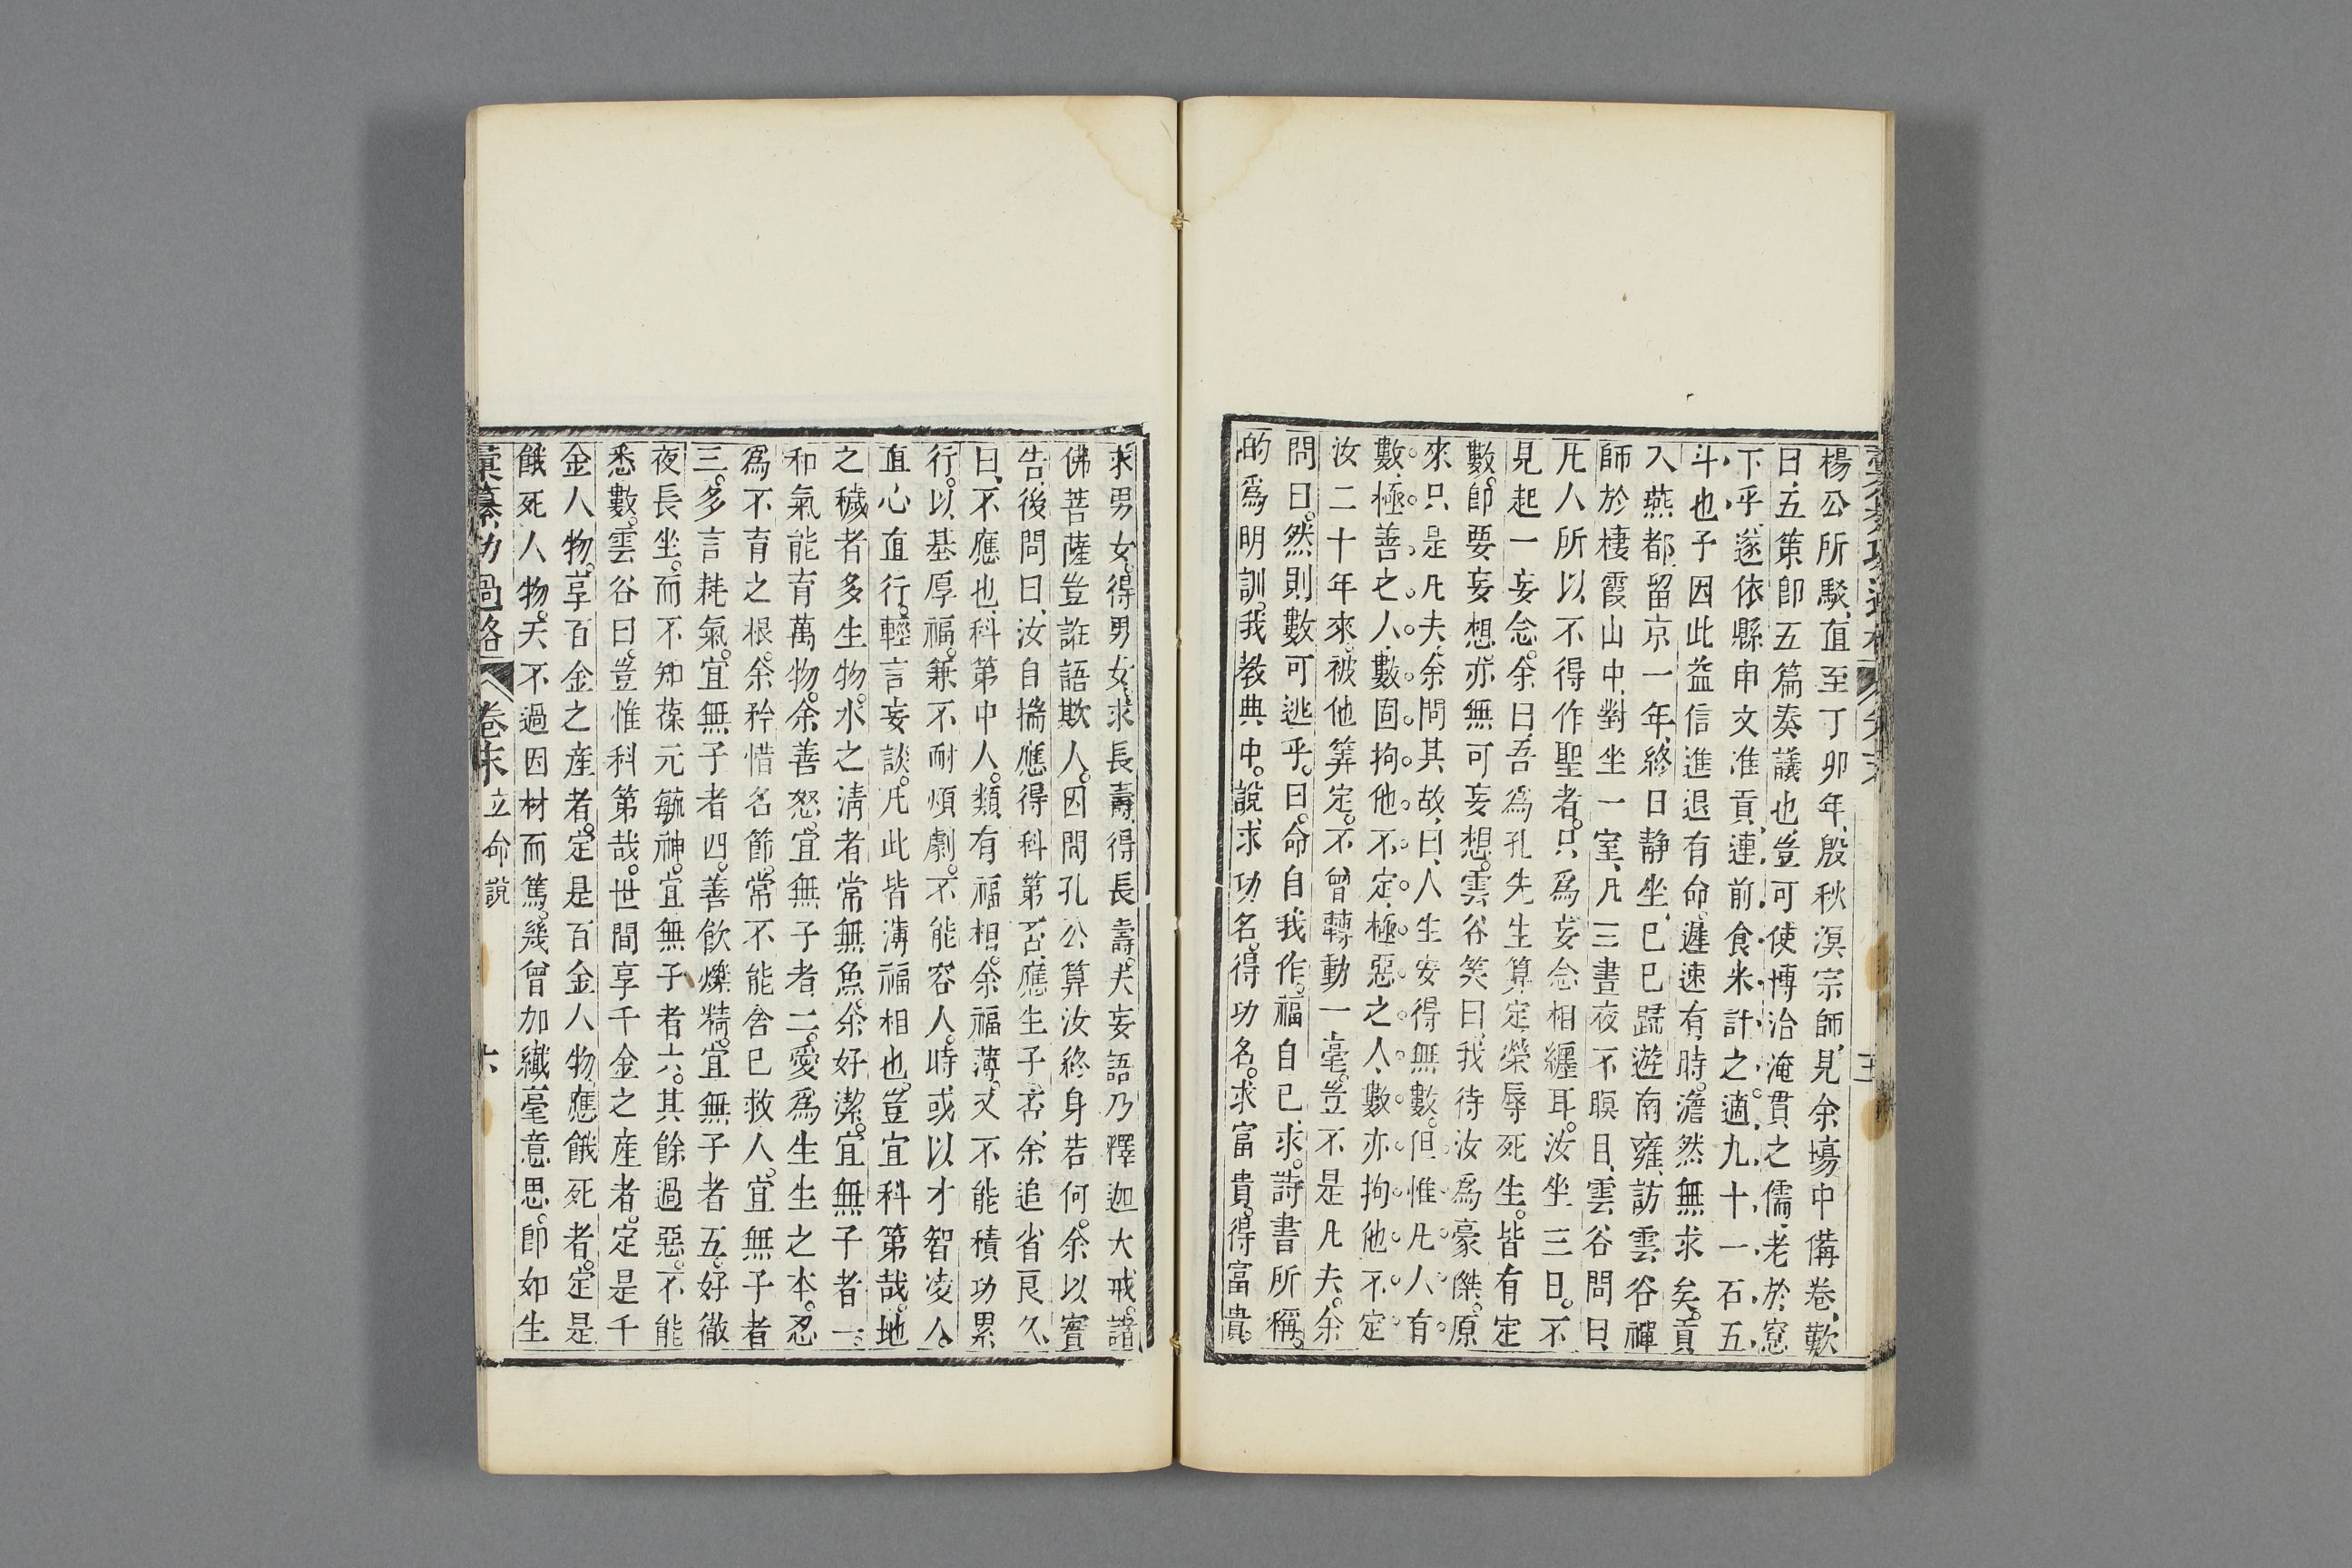 楊公所駁、直至丁卯年、殷秋溟宗師、見余塲中備卷、歎
曰、五策卽五篇奏議也、豈可使博洽淹貫之儒、老於窓
下乎、遂依縣申文准貢、連前食米計之、適九十一石五
斗也、予因此益信進退有命。遲速有時。澹然無求矣。貢
入燕都、留京一年、終日静坐、己巳歸遊南雍、訪雲谷禪
師於棲霞山中、對坐一室、凡三晝夜不瞑目、雲谷問曰、
凡人所以不得作聖者。只爲妄念相纏耳。汝坐三日。不
見起一妄念。余曰、吾爲孔先生算定、榮辱死生。皆有定
數。卽要妄想。亦無可妄想。雲谷笑曰、我待汝爲豪傑。原
來只是凡夫、余問其故、曰、人生安得無數。但惟凡人有
數、極善之人、數固拘他不定、極惡之人、數亦拘他不定
汝二十年來。被他筭定。不曾轉動一毫。豈不是凡夫。余
問曰。然則數可逃乎。曰。命自我作。福自已求。詩書所稱。
的爲明訓。我教典中。說求功名。得功名。求富貴。得富貴。
求男女。得男女。求長壽。得長壽。夫妄語乃釋迦大戒。諸
佛菩薩豈誑語欺人。因問孔公算汝終身若何。余以實
告、後問曰、汝自揣應得科第否、應生子否、余追省良久、
曰、不應也、科第中人。類有福相。余福薄。又不能積功累
行。以基厚福。兼不耐煩劇。不能容人。時或以才智凌人。
直心直行。輕言妄談。凡此皆薄福相也。豈宜科第哉。地
之穢者多生物。水之淸者常無魚。余好潔。宜無子者一。
和氣能育萬物。余善怒。宜無子者二。愛爲生生之本。忍
爲不育之根。余矜惜名節。常不能舍已救人。宜無子者
三。多言耗氣。宜無子者四。善飲爍精。宜無子者五。好徹
夜長坐。而不知葆元毓神。宜無子者六。其餘過惡。不能
悉數。雲谷曰。豈惟科第哉。世間享千金之產者。定是千
金人物。享百金之產者。定是百金人物。應餓死者。定是
餓死人物。天不過因材而篤。幾曾加纎毫意思。卽如生
彙纂功過格　卷末　立命說　六